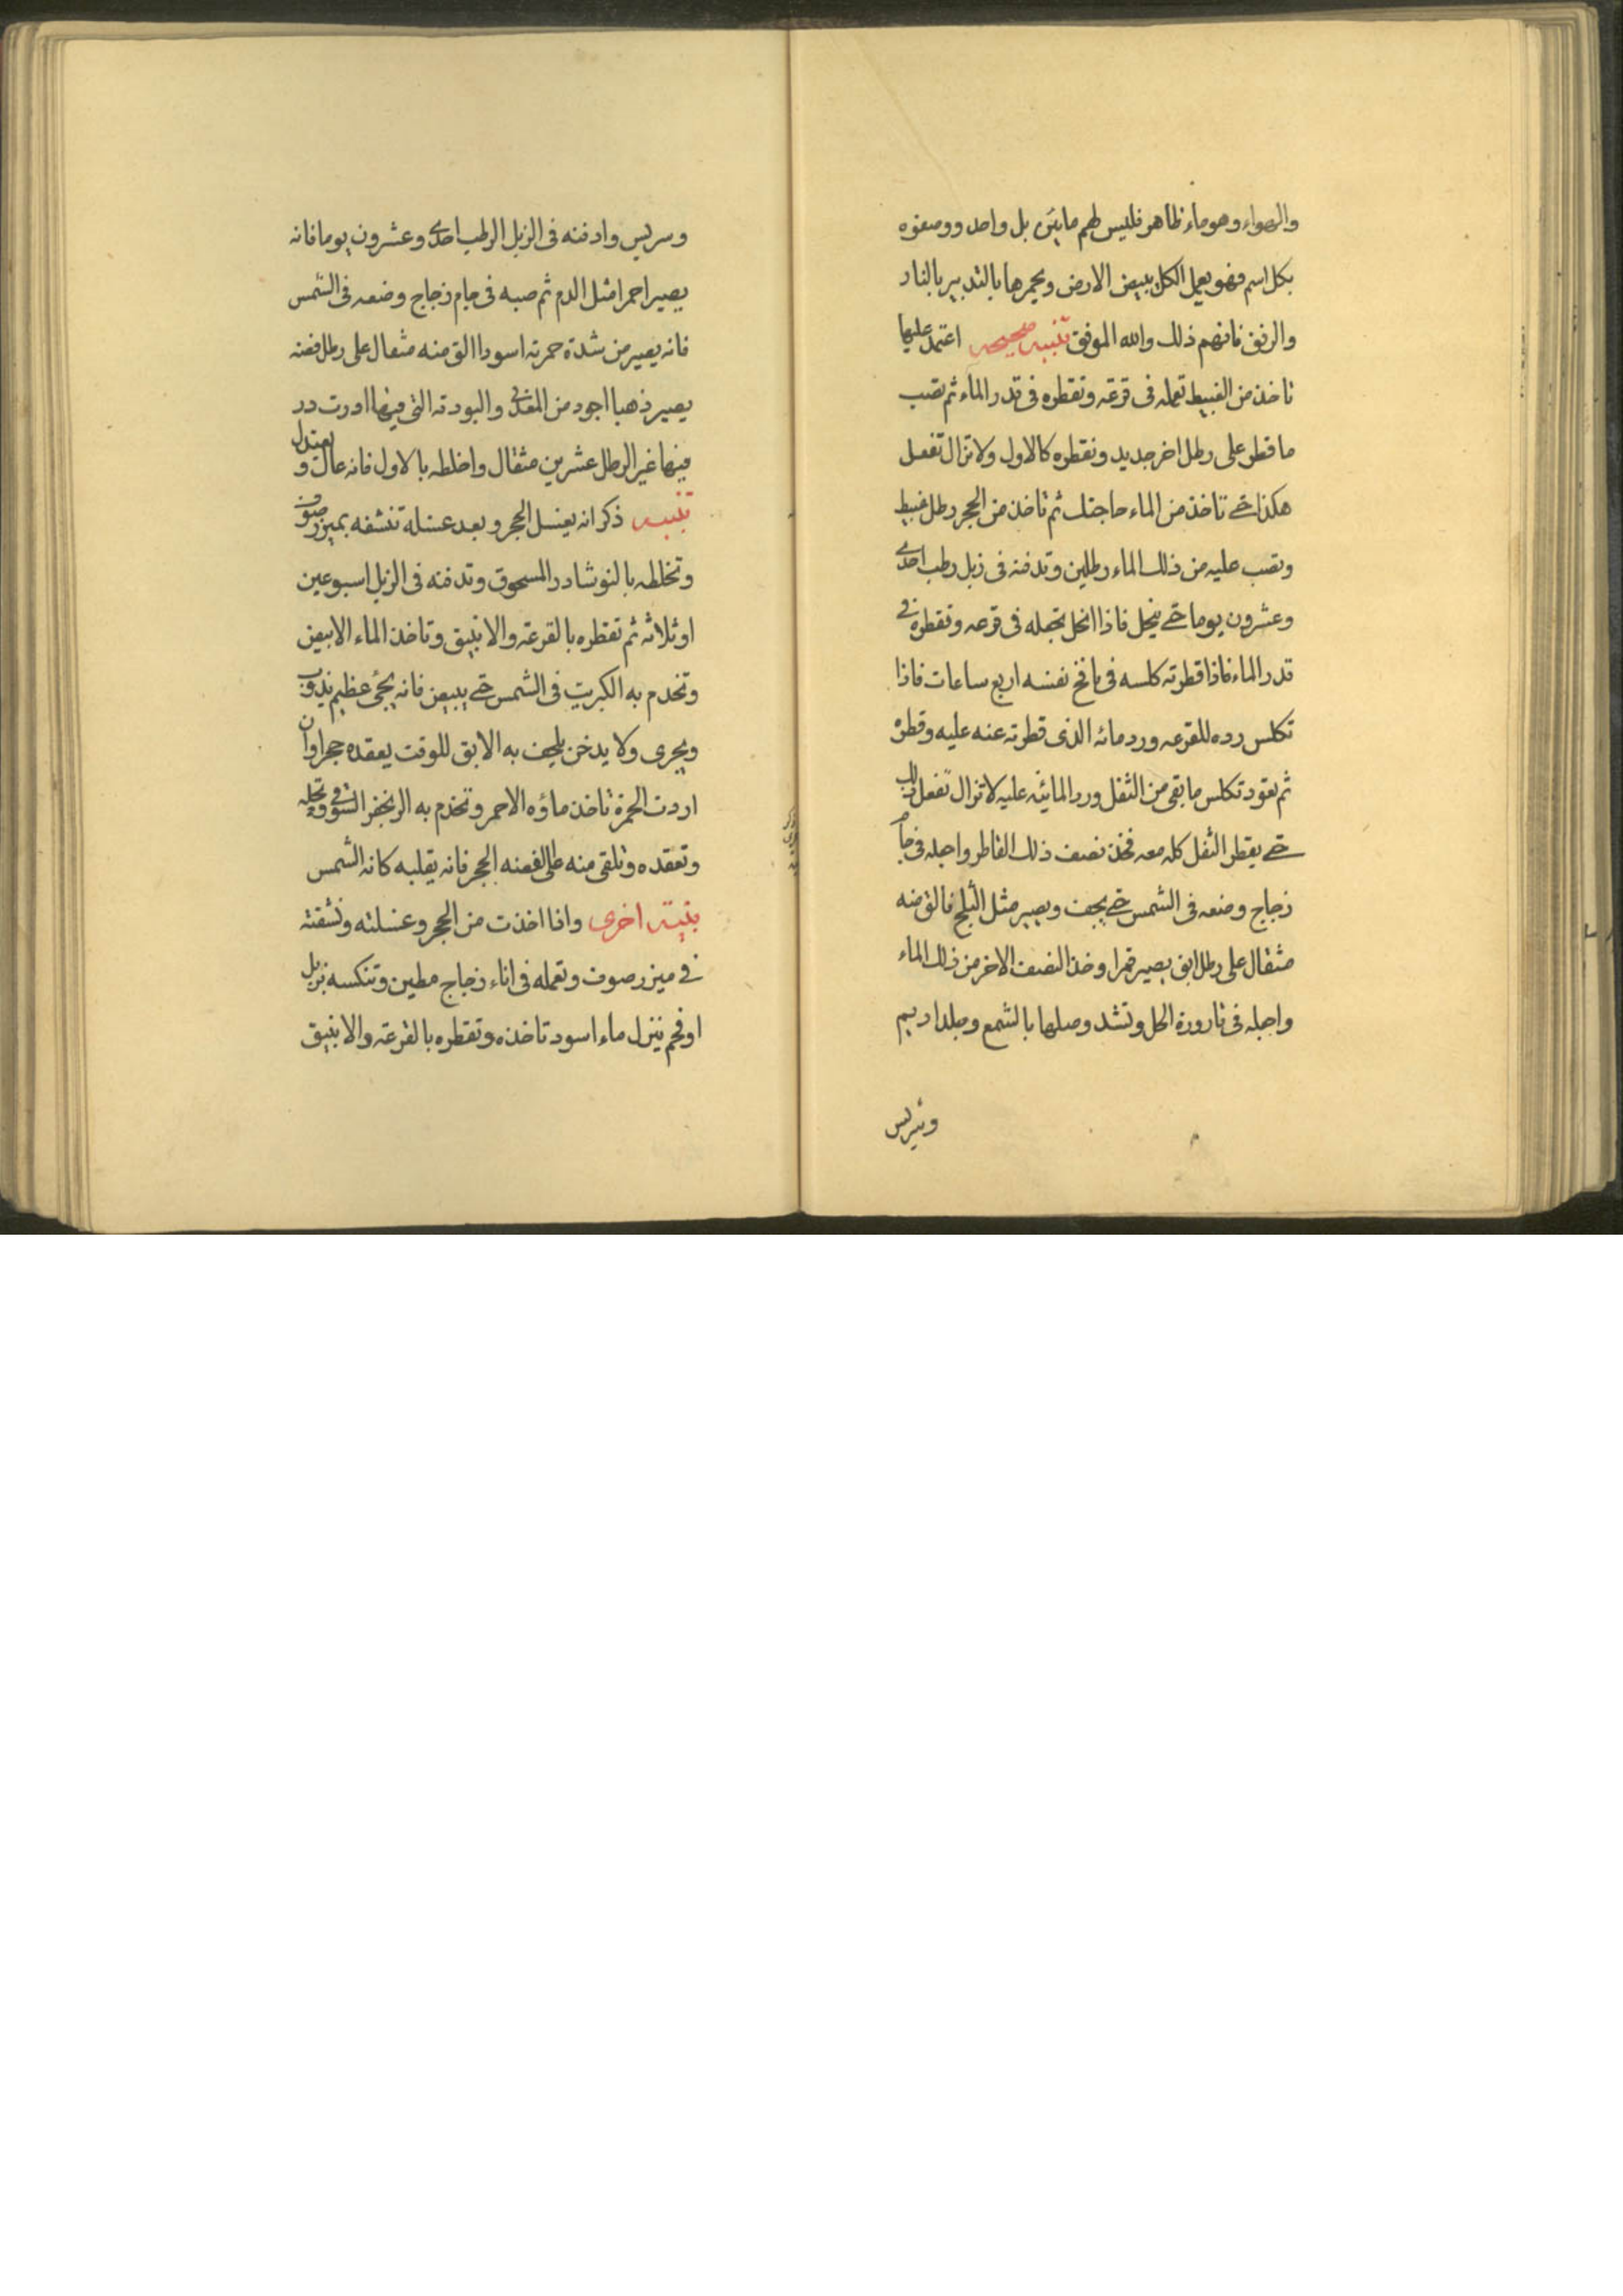 والهواء وهو ماء ظاهر فليس لهم مايتين بل واحد ووصفوه
بكل اسم فهو يعمل الكل يبيض الارض ويحمرها بالتدبير بالنار
والرفق فافهم ذلك والله الموفق تنبيه صحيحه اعتمد عليها
تاخذ من الغبيط تعمله فى قرعه وتقطره فى قدر الماء ثم تصب
ما قطر على رطل اخر جديد وتقطره كالاول ولا تزال تفعل
هكذا حتى تاخذ من الماء حاجتك ثم تاخذ من الحجر رطل غبيط
وتصب عليه من ذلك الماء رطلين وتدفنه فى زبل رطب احدى
وعشرون يوما حتى ينحل فاذا انحل تجعله فى قرعه وتقطره فى
قدر الماء فاذا قطرته كلسه فى نافخ نفسه اربع ساعات فاذا
تكلس رده للقرعه ورد مائه الذى قطرته عنه عليه وقطره
ثم تعود تكلس ما بقى من الثفل ورد المائيه عليه لا تزال تفعل ذلك
حتى يقطر الثفل كله معه فخذ نصف ذلك القاطر واجعله فى جام
زجاج وضعه فى الشمس حتى يجف ويصير مثل الثلج فالق منه
مثقال على رطل ابق يصير قمرا وخذ النصف الاخر من ذلك الماء
واجعله فى قارورة الحل وتشد وصلها بالشمع وجلد اديم
وسريس
وسريس وادفنه فى الزبل الرطب احدى وعشرون يوما فانه
يصير احمر امثل الدم ثم صبه فى جام زجاج وضعه فى الشمس
فانه يصير من شدة حمرته اسودا الق منه مثقال على رطل فضه
يصير ذهبا اجود من المعدنى والبودقه التى فيها ادرت در
فيها غير الرطل عشرين مثقال واخلطه بالاول فانه عال ويعتدل
تنبيه ذكر انه يغسل الحجر وبعد غسله تنشفه بميزر صوف
وتخلطه بالنوشادر المسحوق وتدفنه فى الزبل اسبوعين
او ثلاثه ثم تقطره بالقرعه والانبيق وتاخذ الماء الابيض
وتخدم به الكبريت فى الشمس حتى يبيض فانه يجئ عظيم يذوب
ويجرى ولا يدخن يلجف به الابق للوقت يعقده حجرا وان
اردت الحمرة تاخذ ماؤه الاحمر وتخدم به الزنجفر وتحله
وتعقده وتلقى منه على الفضه الحجر فانه يقلبه كانه الشمس
تنبيه اخرى واذا اخذت من الحجر وغسلته ونشفته
فى ميزر صوف وتعمله فى اناء زجاج مطين وتنكسه بزبل
او فحم ينزل ماء اسود تاخذه وتقطره بالقرعه والانبيق